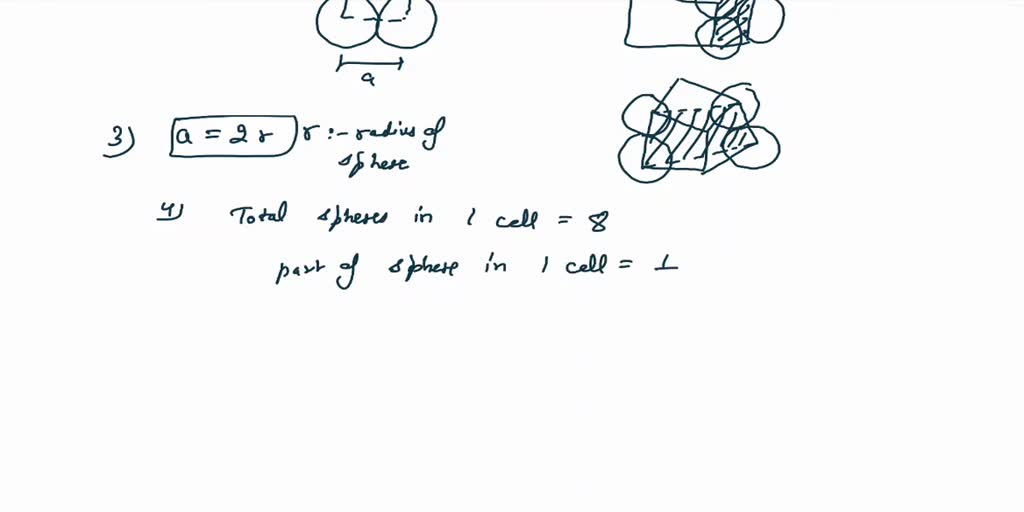 a
3) a = 2r r :- radius of
sphere
4) Total spheres in 1 cell = 8
part of sphere in 1 cell = 1